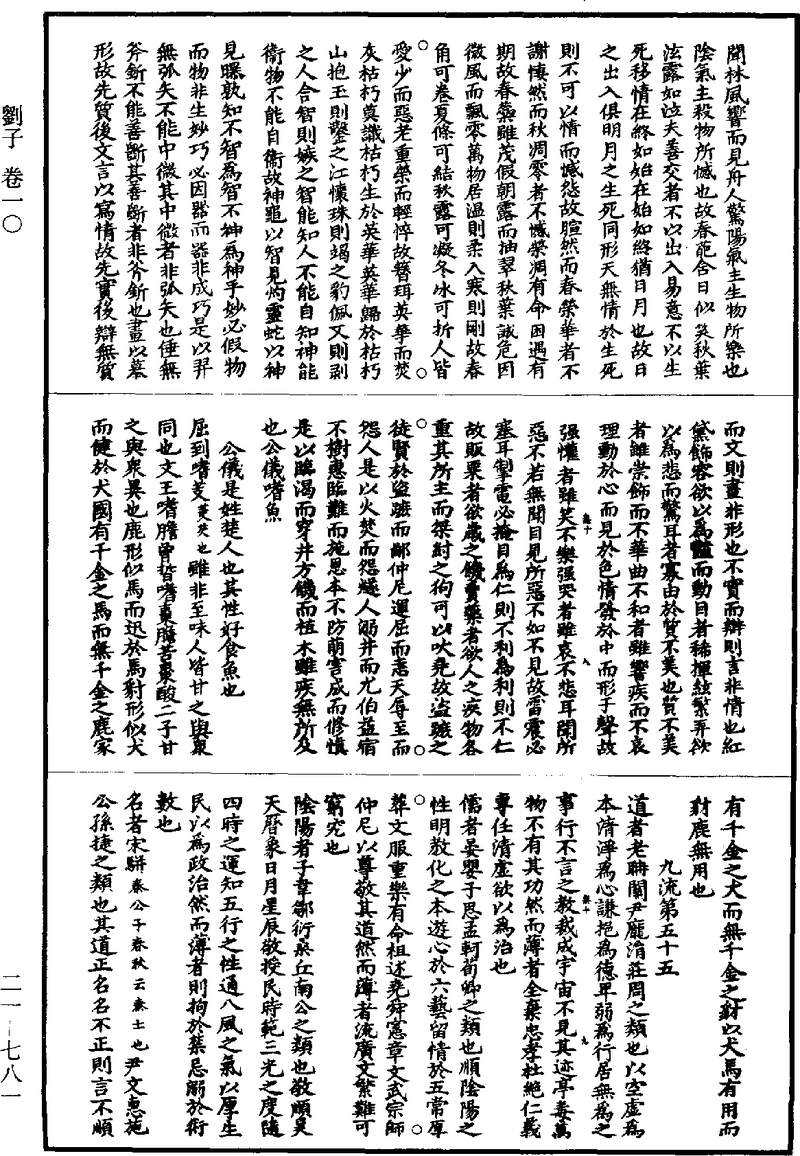 聞林風響而見舟人驚陽氣主生物所樂也
陰氣主殺物所憾也故春葩含日似笑秋葉
泫露如泣夫善交者不以出入易意不以生
死移情在終如始在始如終猶日月也故日
之出入俱明月之生死同形天無情於生死
則不可以情而憾怨故暄然而春榮華者不
謝悽然而秋凋零者不憾榮凋有命困遇有
期故春蘂雖茂假朝露而抽翠秋葉誠危因
微風而飄零萬物居溫則柔入寒則剛故春
角可卷夏條可結秋露可凝冬冰可折人皆
愛少而惡老重榮而輕悴故簪珥英華而焚
灰枯朽莫識枯朽生於英華英華歸於枯朽
山抱玉則鑿之江懷珠則竭之豹佩文則剝
之人含智則嫉之智能知人不能自知神能
衞物不能自衞故神龜以智見灼靈蛇以神
見曝孰知不智為智不神為神乎妙必假物
而物非生妙巧必因器而器非成巧是以羿
無弧矢不能中微其中微者非弧矢也倕無
斧斤不能善斷其善斷者非斧斤也畫以摹
形故先質後文言以寫情故先實後辯無質
而文則畫非形也不實而辯則言非情也紅
黛飾容欲以為豔而動目者稀揮絃繁弄欲
以為悲而驚耳者寡由於質不美也質不美
者雖崇飾而不華曲不和者雖響疾而不哀
理動於心而見於色情發於中而形于聲故
强懽者雖笑不樂强哭者雖哀不悲耳聞所
惡不若無聞目見所惡不如不見故雷震必
塞耳掣電必掩目為仁則不利為利則不仁
故販粟者欲歲之饑賣藥者欲人之疾物各
重其所主而桀紂之狗可以吠堯故盜跖之
徒賢於盜跖而鄙仲尼運屈而恚天辱至而
怨人是以火焚而怨燧人溺井而尤伯益宿
不樹惠臨難而施恩本不防萌害成而修慎
是以臨渴而穿井方饑而植木雖疾無所及
也公儀嗜魚
公儀是姓楚人也其性好食魚也
屈到嗜芰菱芰也雖非至味人皆甘之與衆
同也文王嗜膽曾晳嗜棗膽苦棗酸二子甘
之與衆異也鹿形似馬而迅於馬豺形似犬
而健於犬國有千金之馬而無千金之鹿家
有千金之犬而無千金之豺以犬馬有用而
豺鹿無用也
九流第五十五
道者老聃關尹龐涓莊周之類也以空虛為
本清淨為心謙挹為德卑弱為行居無為之
事行不言之教裁成宇宙不見其迹亭毒萬
物不有其功然而薄者全棄忠孝杜絕仁義
專任清虛欲以為治也
儒者晏嬰子思孟軻荀卿之類也順陰陽之
性明教化之本遊心於六藝留情於五常厚
葬文服重樂有命祖述堯舜憲章文武宗師
仲尼以尊敬其道然而薄者流廣文繁難可
窮究也
陰陽者子韋鄒衍桑丘南公之類也敬順昊
天曆象日月星辰敬授民時範三光之度隨
四時之運知五行之性通八風之氣以厚生
民以為政治然而薄者則拘於禁忌溺於術
數也
名者宋駢秦公子春秋云秦士也尹文惠施
公孫捷之類也其道正名名不正則言不順
劉子　卷一〇
二一－七八一